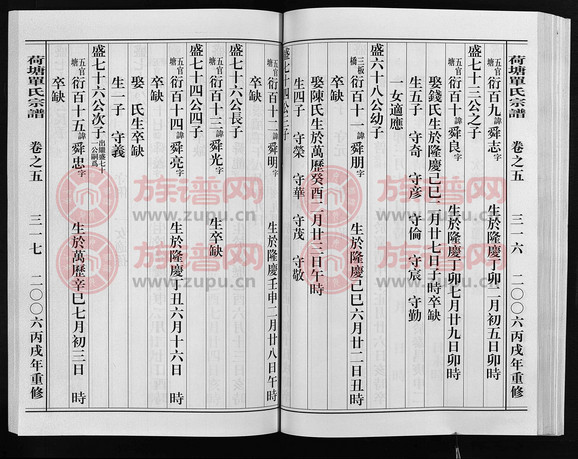 荷塘單氏宗譜 卷之五 三一六 二〇〇六丙戌年重修
盛七十三公之子
五官塘 衍百九 諱舜志 字 生於隆慶丁卯二月初五日卯時
衍百十 諱舜良 字 生於隆慶丁卯七月廿九日卯時
娶錢氏生於隆慶己巳二月廿七日子時卒缺
生五子 守奇 守彦 守倫 守宸 守勤
一女適應
盛六十八公幼子
三板橋 衍百十一 諱舜朋 字 生於隆慶己巳六月廿二日丑時
卒缺
娶陳氏生於萬歷癸酉二月廿三日午時
生四子 守榮 守華 守茂 守敬
盛七十四公三子
五官塘 衍百十二 諱舜明 字 生於隆慶壬申二月廿八日午時
卒缺
盛七十六公長子
五官塘 衍百十三 諱舜光 字 生卒缺
盛七十四公四子
五官塘 衍百十四 諱舜亮 字 生於隆慶丁丑六月十六日 時
卒缺
娶 氏生卒缺
生一子 守義
盛七十六公次子 出繼盛七十公嗣爲
五官塘 衍百十五 諱舜忠 字 生於萬歷辛巳七月初三日 時
卒缺
荷塘單氏宗譜 卷之五 三一七 二〇〇六丙戌年重修
族谱网
www.zupu.cn
族谱网
www.zupu.cn